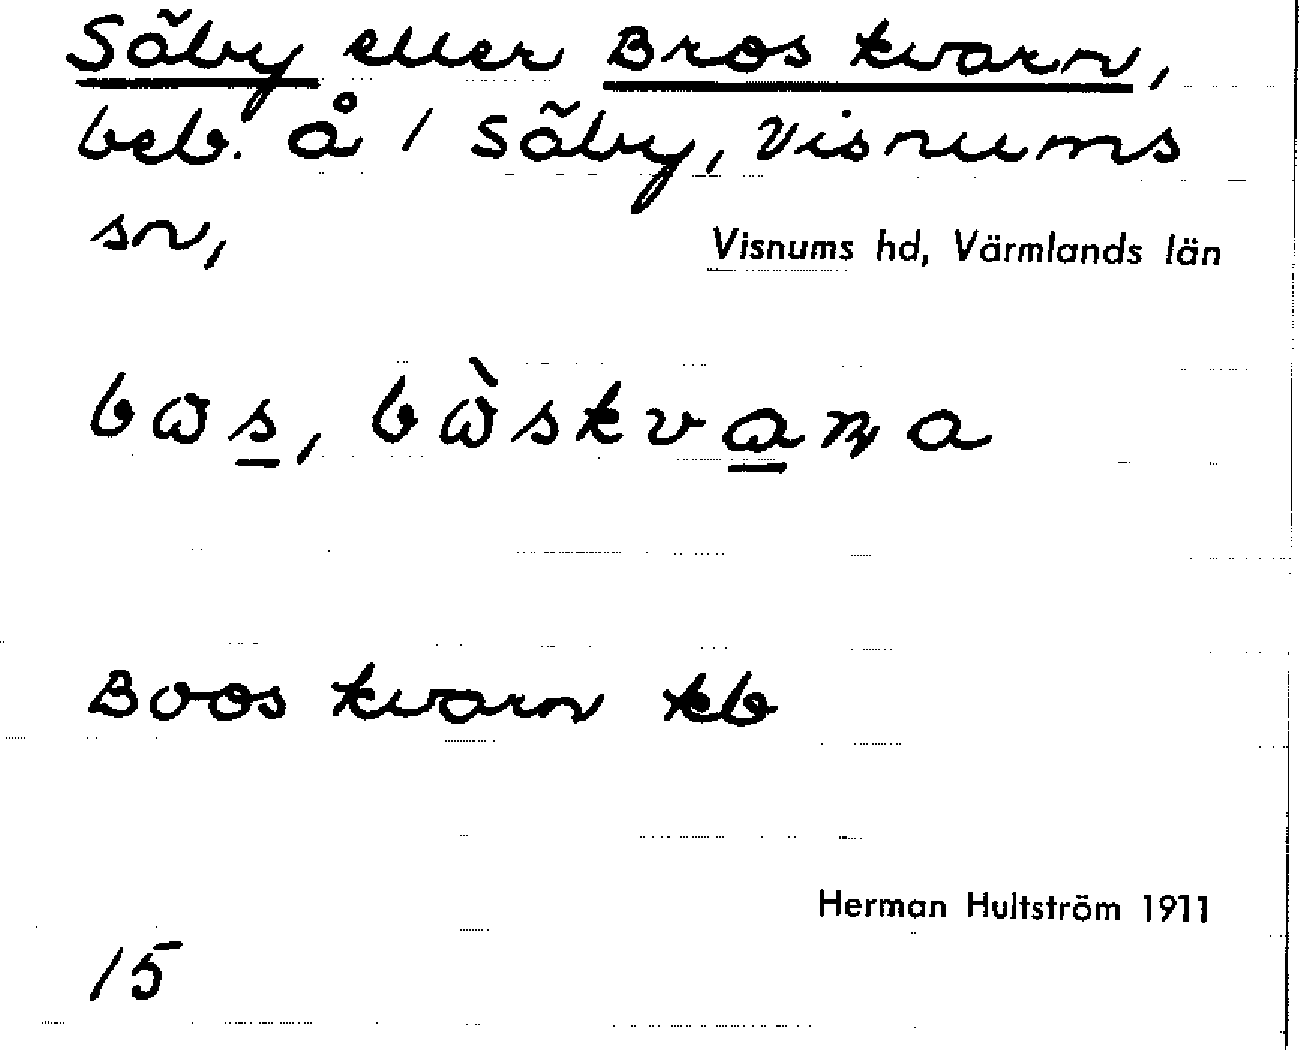 Säby eller Bros kvarn,
beb. å 1 Säby, Visnums
sn,
Visnums hd, Värmlands län
bɷs, bɷ̀skvaɳa
Boos kvarn kb
Herman Hultström 1911
15